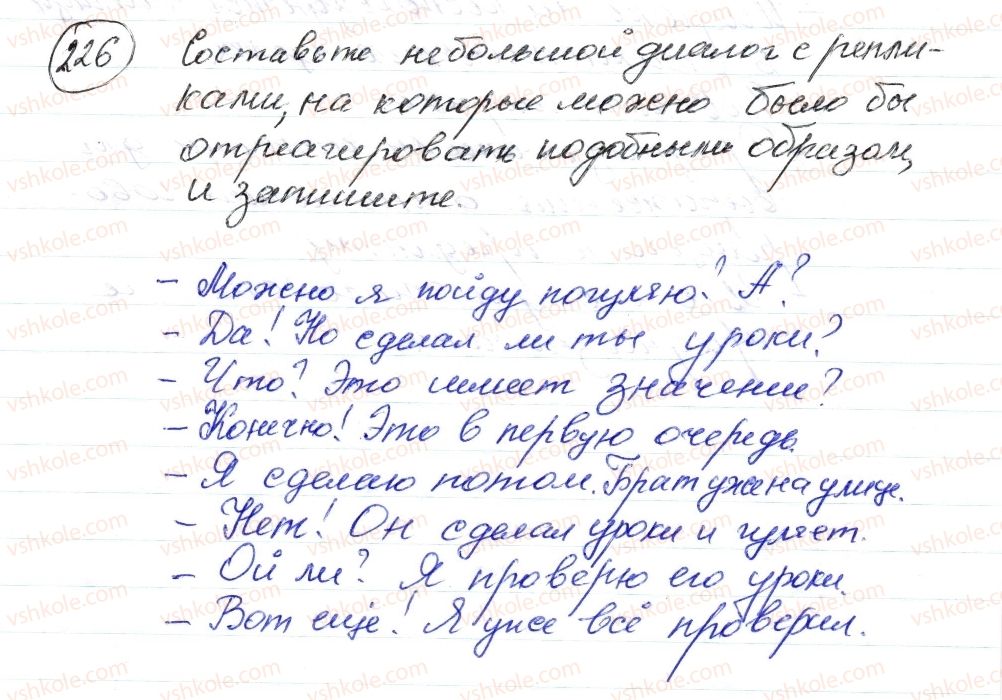 226 Составьте небольшой диалог с репли-
ками, на которые можно было бы
отреагировать подобным образом,
и запишите.
- Можно я пойду погуляю? А?
- Да! Но сделал ли ты уроки?
- Что? Это имеет значение?
- Конечно! Это в первую очередь.
- Я сделаю потом. Брат уже на улице.
- Нет! Он сделал уроки и гуляет.
- Ой ли? Я проверю его уроки.
- Вот ещё! Я уже всё проверил.